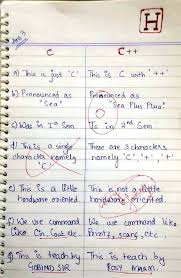 H
Ans 3
C C++
a) This is just 'C' This is C with '++'
b) Pronounced as Pronounced as
"Sea" "Sea Plus Plus"
c) Was in Ist Sem Is in 2nd Sem
d) This is a single These are 3 characters
character namely namely "C", '+', '+'
'C'
e) This is a little This is not a little
hardware oriented. hardware oriented.
f) We use command We use command like
like Cin, Cout etc Printf, scanf, etc.
g) This is teach by This is teach by
GOBIND SIR ROSY MAAM.